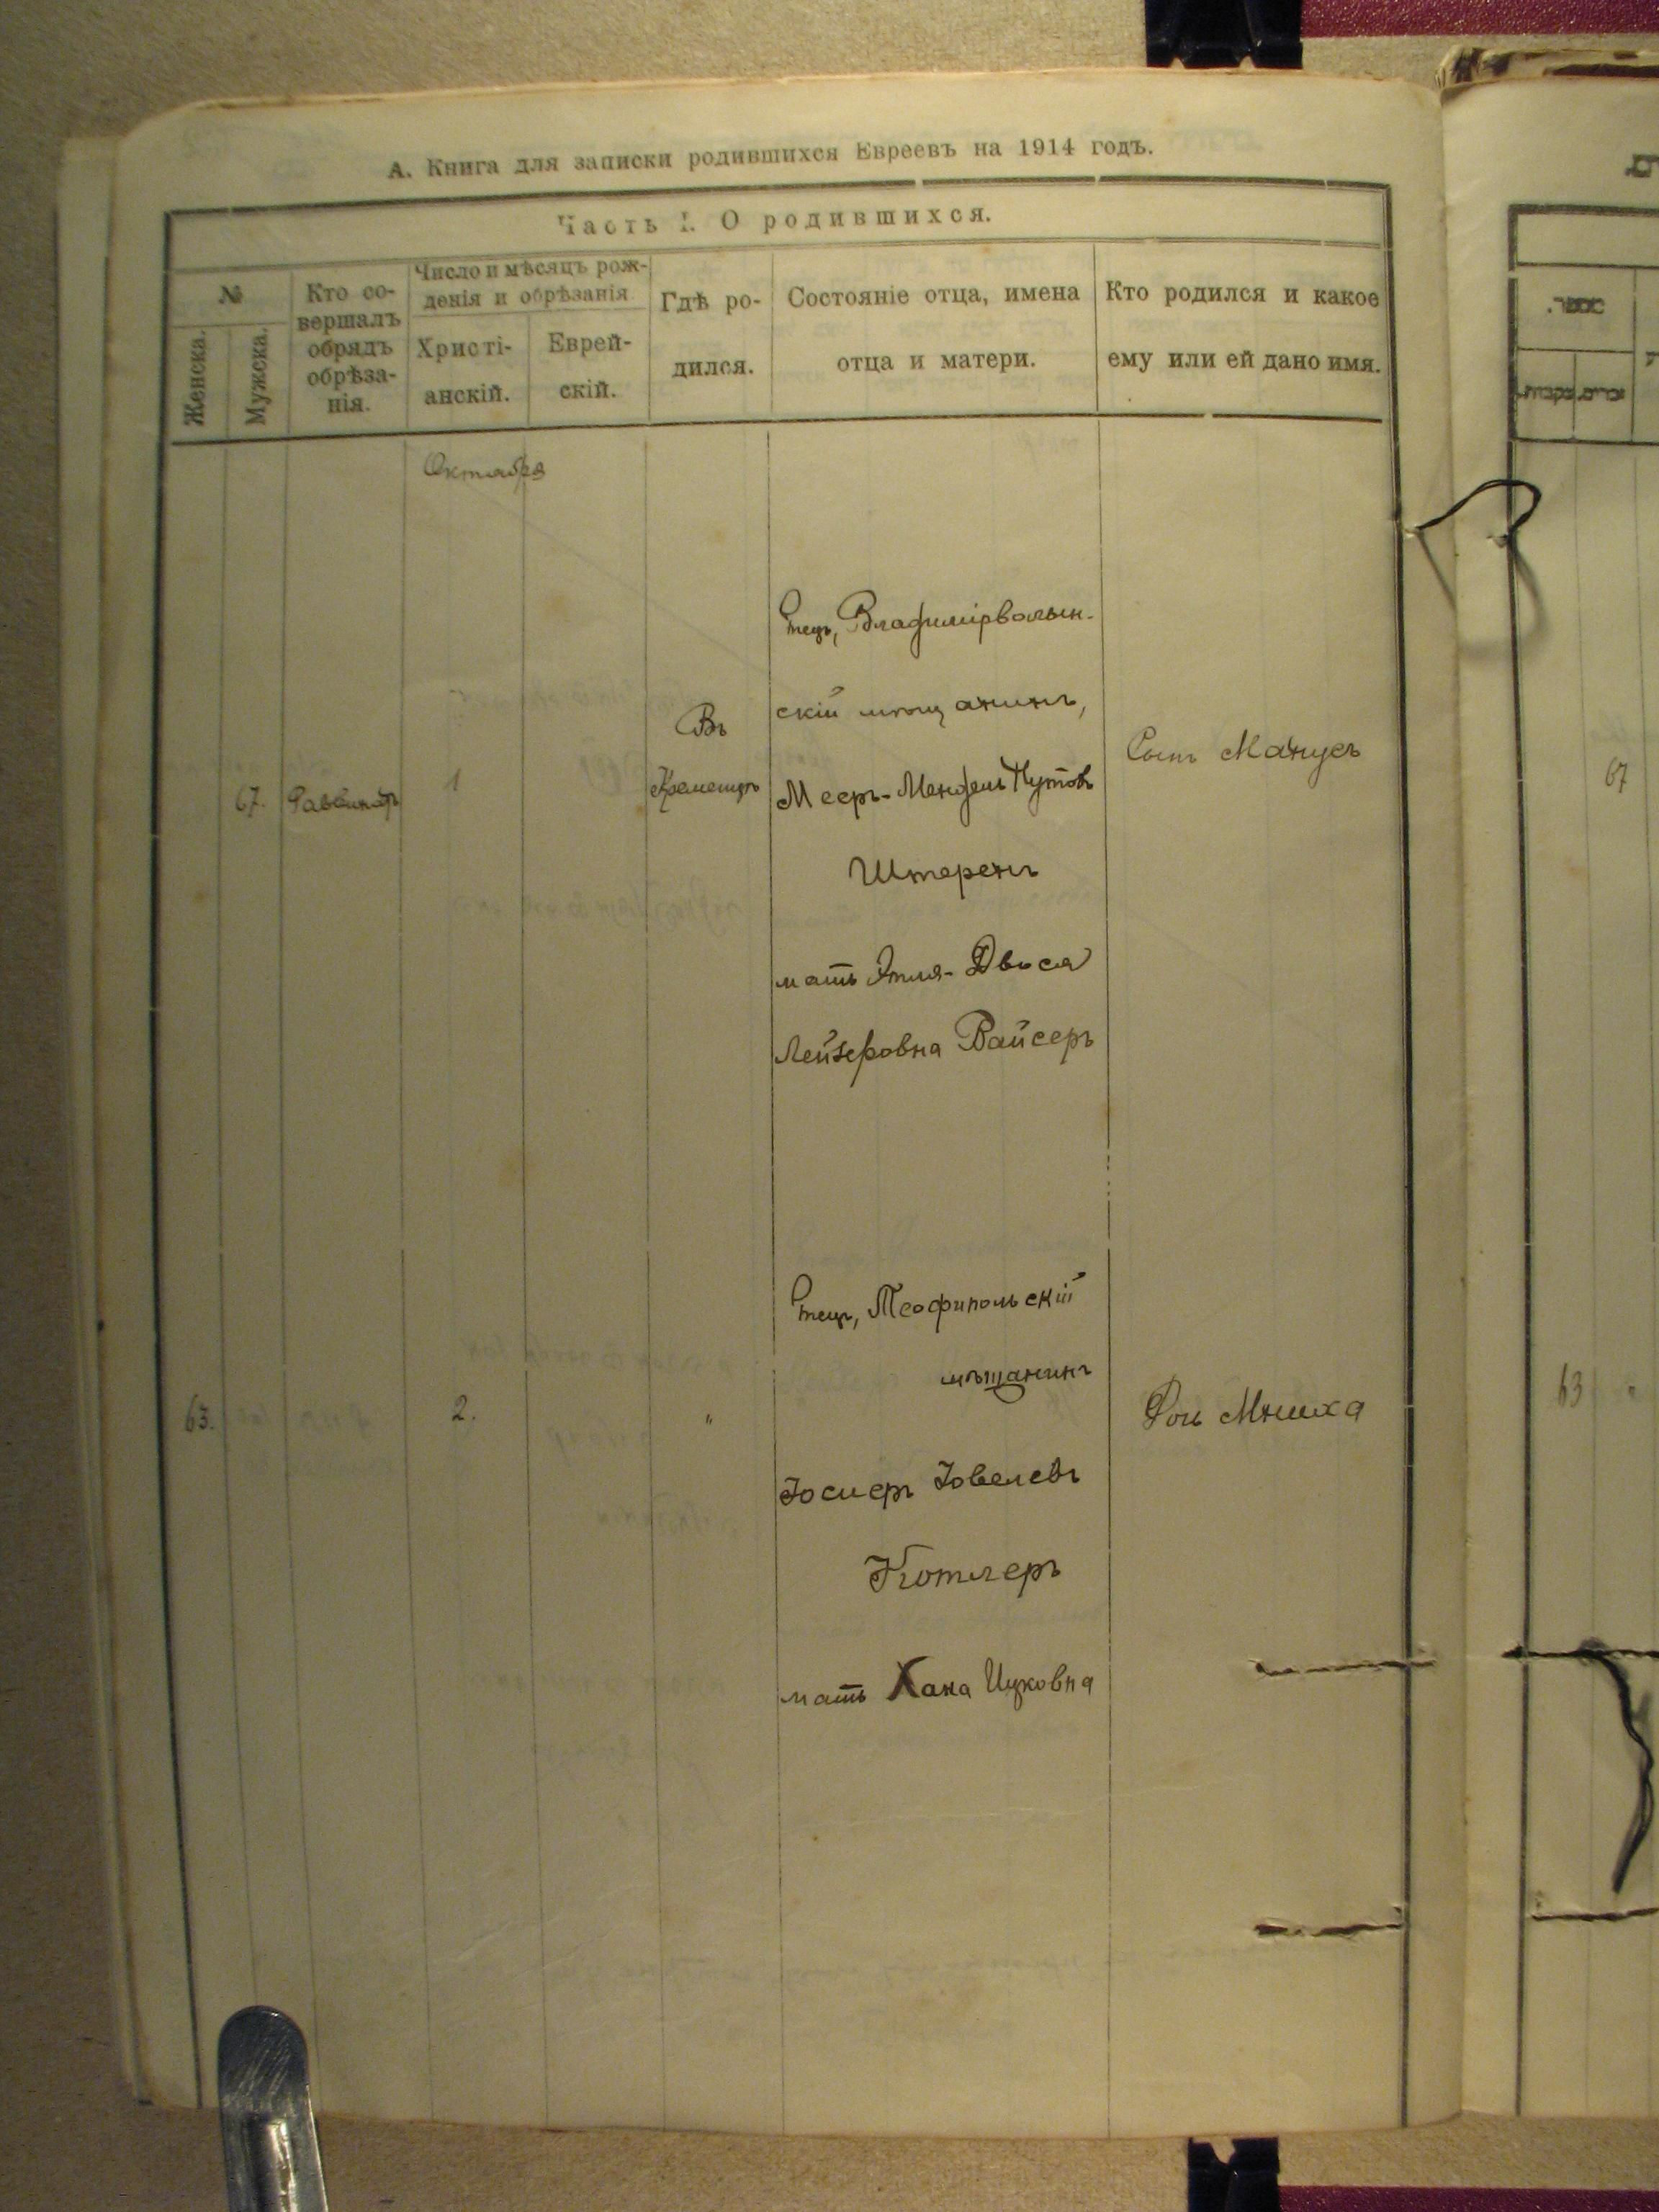 А. Книга для записки родившихся Евреевъ на 1914 годъ.
Часть I. О родившихся.
№
Женска.
Мужска.
Кто со-
вершалъ
обрядъ
обрѣза-
нія.
Число и мѣсяцъ рож-
денія и обрѣзанія
Христі-
анскій.
Еврей-
скій.
Гдѣ ро-
дился.
Состояніе отца, имена
отца и матери.
Кто родился и какое
ему или ей дано имя.
Октября
67.
1
Въ
Кременцѣ
Отецъ, Владимірволын-
скій мѣщанинъ,
Мееръ-Мендель
Штеренъ
мать Этля-Двося
Лейзеровна Вайсеръ
Сынъ Манусъ
67
63.
2.
"
Отецъ, Теофипольскій
мѣщанинъ
Іосифъ Іовелевъ
Котлеръ
мать Хана Ицковна
Дочь
63